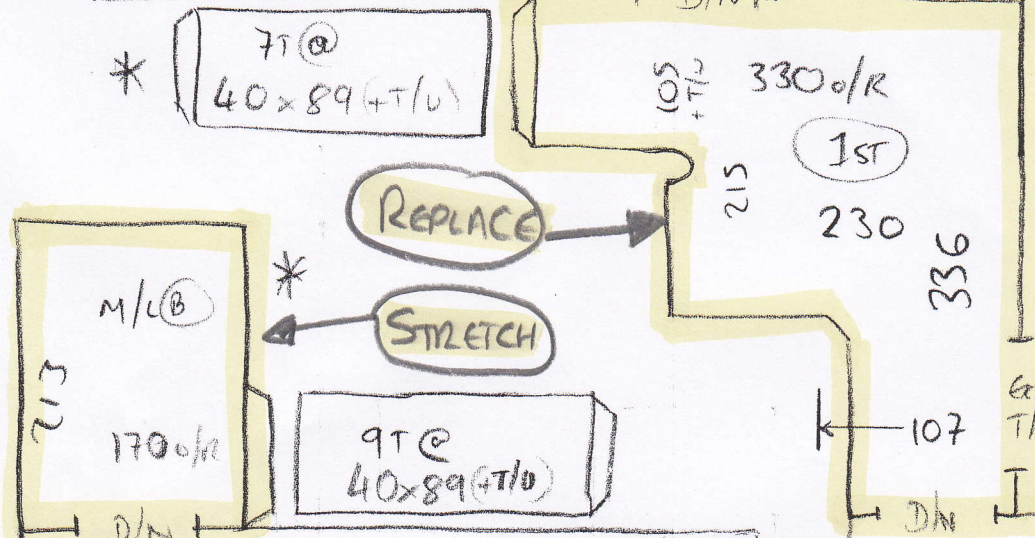 D/N
7T @
40x89(+T/U)
*
105
+T/U
330 o/R
1ST
215
230
336
REPLACE
*
M/L B
STRETCH
213
170 o/R
9T @
40x89(+T/U)
107
G
T/
D/N
D/N